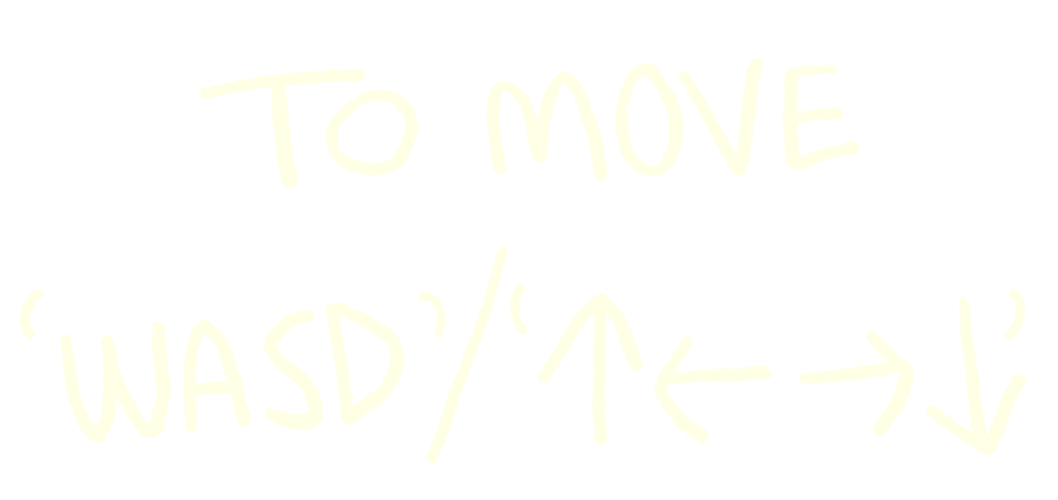 TO MOVE
'WASD'/'↑←→↓'